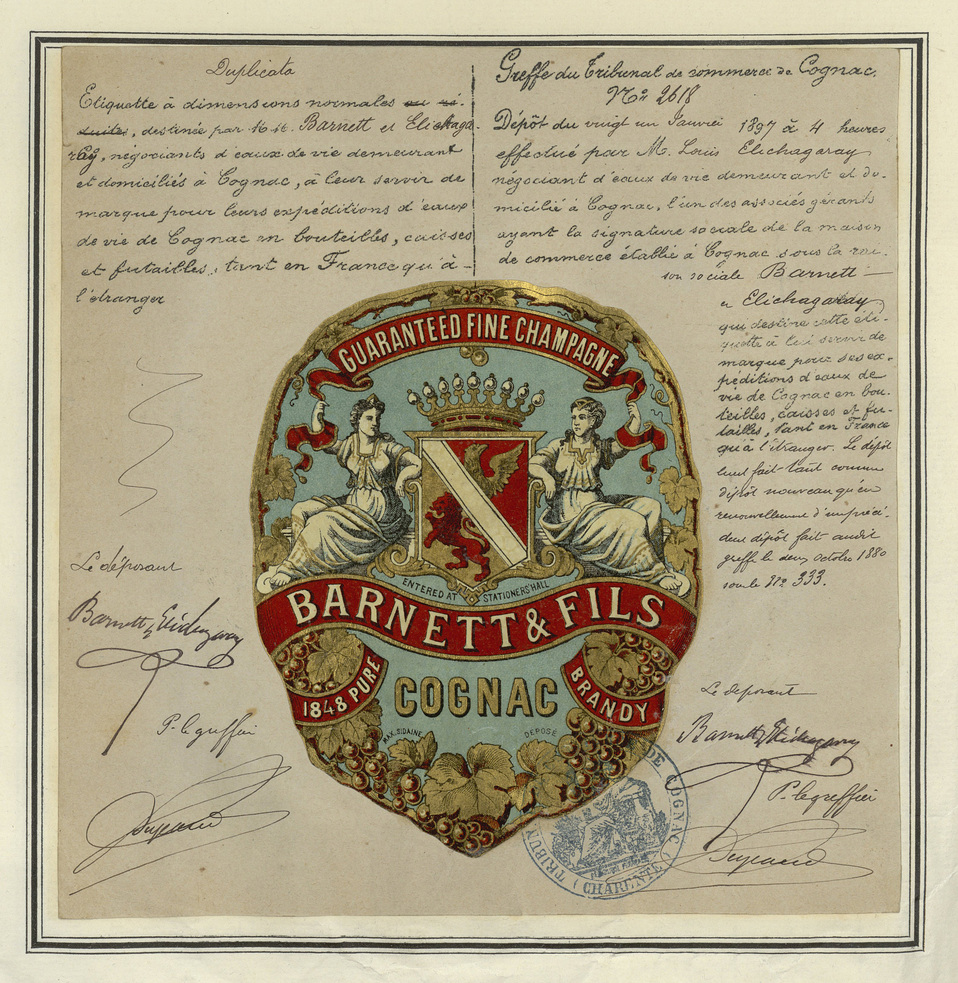 Duplicata
Etiquette à dimensions normales ou ré-
duites, destinée par M.M. Barnett et Elichaga-
ray, négociants d'eaux de vie demeurant
et domiciliés à Cognac, à leur servir de
marque pour leurs expéditions d'eaux
de vie de Cognac en bouteilles, caisses
et futailles, tant en France qu'à
l'étranger
Le déposant
Barnett & Elichagaray
P. le greffier
Greffe du Tribunal de commerce de Cognac.
No 2618
Dépôt du vingt un Janvier 1897 à 4 heures
effectué par M. Louis Elichagaray
négociant d'eaux de vie demeurant et do-
micilié à Cognac, l'un des associés gérants
ayant la signature sociale de la maison
de commerce établie à Cognac sous la rai-
son sociale Barnett
et Elichagaray
qui destine cette éti-
quette à lui servir de
marque pour ses ex-
péditions d'eaux de
vie de Cognac en bou-
teilles, caisses et fu-
tailles, tant en France
qu'à l'étranger. Le dépôt
fait tant comme
dépôt nouveau qu'en
renouvellement d'un précé-
dent dépôt fait audit
greffe le deux octobre 1880
sous le No 333.
Le déposant
Barnett & Elichagaray
P. le greffier
GUARANTEED FINE CHAMPAGNE
ENTERED AT STATIONERS' HALL
BARNETT & FILS
1848 PURE BRANDY
COGNAC
MAX. SIDAINE DEPOSÉ
TRIBUN DE COGNAC
CHARENTE